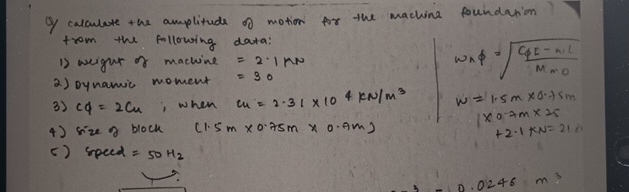 Q/ calculate the amplitude of motion for the machine foundation
from the following data:
1) weight of machine = 2.1 KN
2) Dynamic moment = 30
3) Cφ = 2Cu ; when Cu = 2.31 x 10^4 KN/m^3
4) size of block (1.5 m x 0.75m x 0.7m)
5) speed = 50 Hz
Wnφ = √(CφI - WL / Mmo)
W = 1.5m x 0.75m
x 0.7m x 25
+2.1 KN = 21.
0.0246 m^3